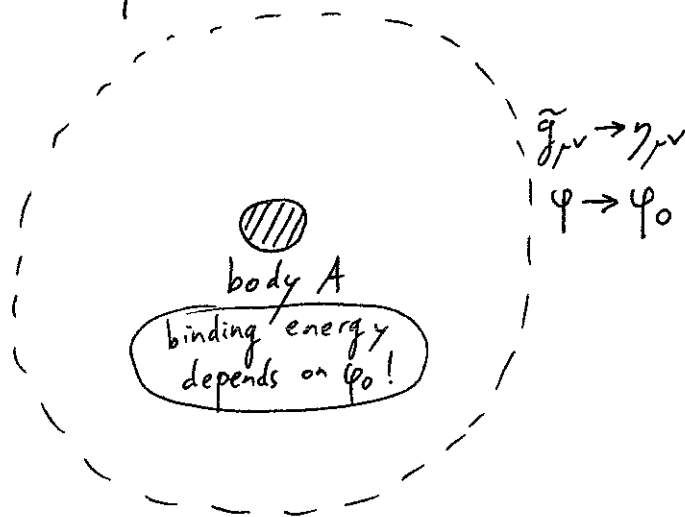 g̃μν → ημν
φ → φ₀
body A
binding energy
depends on φ₀ !